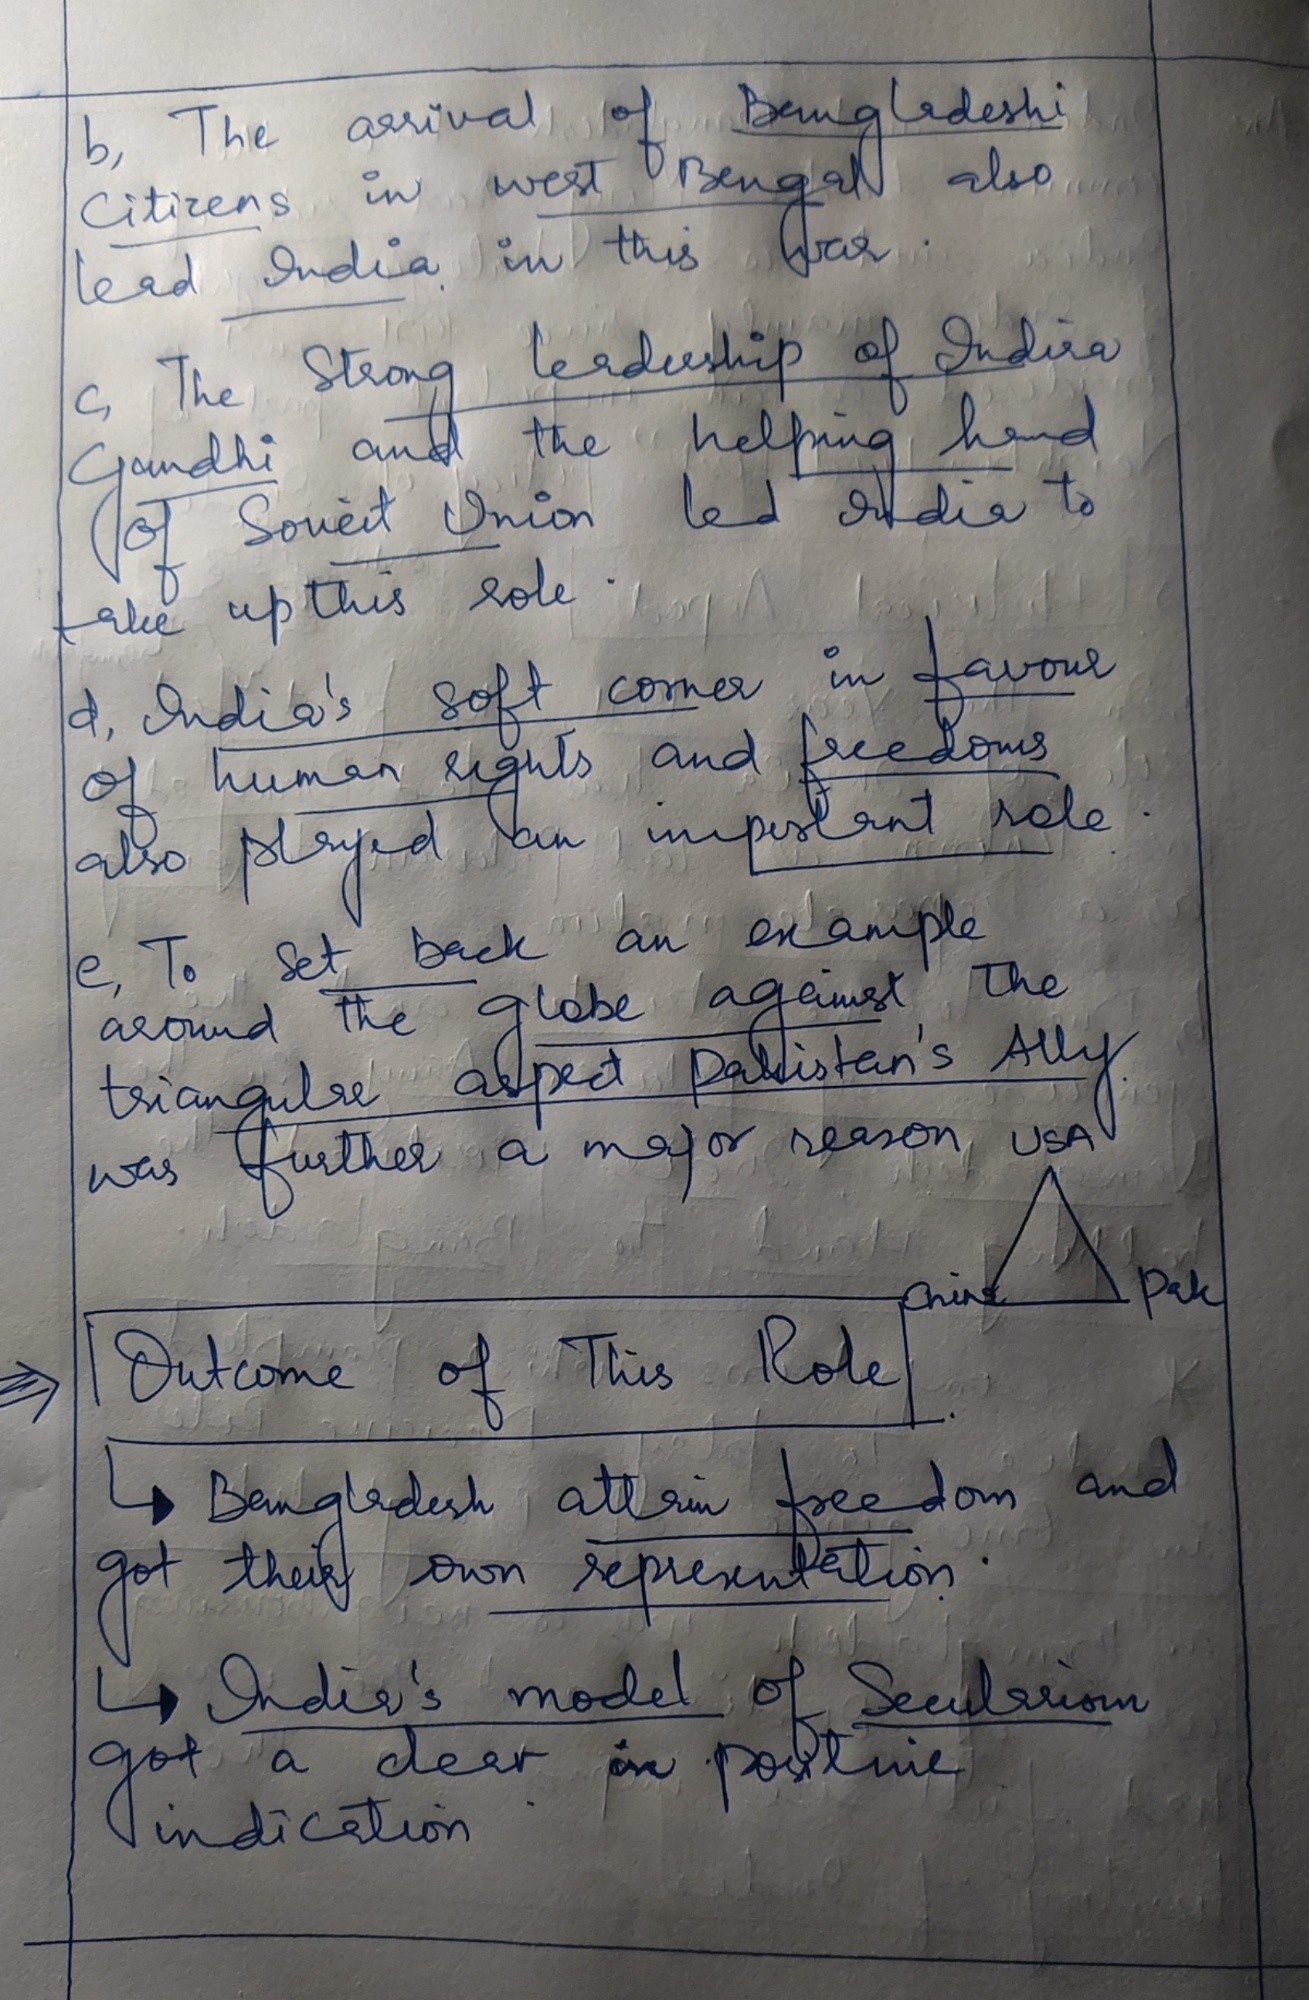 b, The arrival of Bangladeshi
Citizens in west Bengal also
lead India in this war.
c, The Strong leadership of Indira
Gandhi and the helping hand
of Soveit Union led India to
take up this role.
d, India's soft corner in favour
of human rights and freedoms
also played an important role.
e, To set back an example
around the globe against the
triangular aspect Pakistan's Ally
was further a major reason
USA
China Pak
Outcome of This Role
↳ Bangladesh attain freedom and
got their own representation.
↳ India's model of Secularism
got a clear positive
indication.